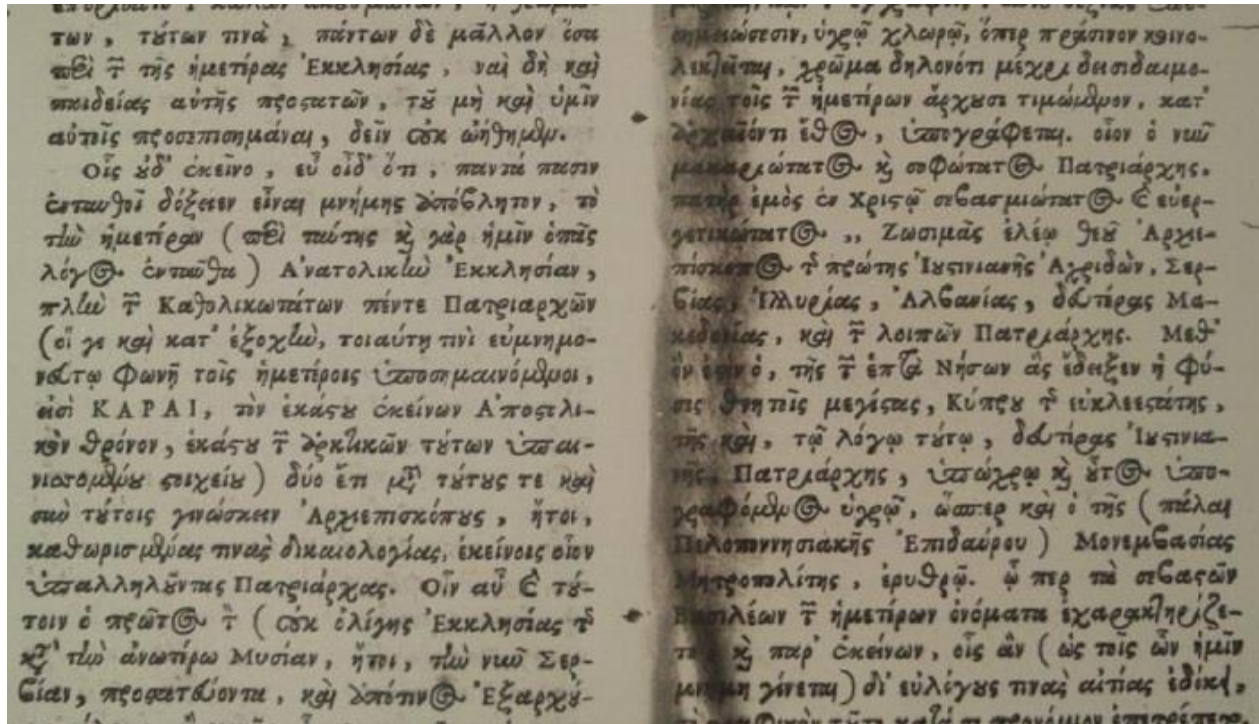 των, τούτων τινὰ, πάντων δὲ μᾶλλον ὅσα
περὶ τῶν τῆς ἡμετέρας Ἐκκλησίας, ναὶ δὴ καὶ
παιδείας αὐτῆς προστατῶν, τοῦ μὴ καὶ ὑμῖν
αὐτοῖς προσεπισημάναι, δεῖν οὐκ ᾠήθημεν.
Οἷς οὐδ' ἐκεῖνο, εὖ οἶδ' ὅτι, παντά πασιν
ἐνταυθοῖ δόξειεν εἶναι μνήμης ἀπόβλητον, τὸ
τὴν ἡμετέραν (περὶ ταύτης καὶ γὰρ ἡμῖν ὁπᾶς
λόγος ἐνταῦθα) Ἀνατολικὴν Ἐκκλησίαν,
πλὴν τῶν Καθολικωτάτων πέντε Πατριαρχῶν
(οἵ γε καὶ κατ' ἐξοχὴν, τοιαύτῃ τινὶ εὐμνημο-
νεύτῳ Φωνῇ τοῖς ἡμετέροις ὑποσημαινόμενοι,
εἰσὶ ΚΑΡΑΙ, τὸν ἑκάστου ἐκείνων Ἀποστολι-
κὸν θρόνον, ἑκάστου τῶν ἀρκτικῶν τούτων ὑπαι-
νιττομένου στοιχείου) δύο ἔτι μετὰ τούτους τε καὶ
σὺν τούτοις γινώσκειν Ἀρχιεπισκόπους, ἤτοι,
καθωρισμένας τινὰς δικαιολογίας, ἐκείνοις οἷον
ὑπαλληλοῦντας Πατριάρχας. Οἷν αὖ καὶ τού-
τοιν ὁ πρῶτος τῶν (οὐκ ὀλίγης Ἐκκλησίας τῆς
κατὰ τὴν ἀνωτέρω Μυσίαν, ἤτοι, τὴν νῦν Σερ-
βίαν, προστατεύοντα, καὶ ἀπότινος Ἐξαρχού-
σημειώσεσιν, ὑγρῷ χλωρῷ, ὅπερ πράσινον κοινο-
λεκτεῖται, χρῶμα δηλονότι μέχρι δεισιδαιμο-
νίας τοῖς τῶν ἡμετέρων ἄρχουσι τιμώμενον, κατ'
ἀρχαιόντι ἔθος, ὑπογράφεται. οἷον ὁ νῦν
μακαριώτατος καὶ σοφώτατος Πατριάρχης,
πατὴρ ἐμὸς ἐν Χριστῷ σεβασμιώτατος καὶ εὐερ-
γετικώτατος ,, Ζωσιμᾶς ἐλέῳ θεοῦ Ἀρχιε-
πίσκοπος τῆς πρώτης Ἰουστινιανῆς Ἀχριδῶν, Σερ-
βίας, Ἰλλυρίας, Ἀλβανίας, δευτέρας Μα-
κεδονίας, καὶ τῶν λοιπῶν Πατριάρχης. Μεθ'
ὃν ἐστιν ὁ, τῆς τῶν ἑπτὰ Νήσων ἃς ἔδειξεν ἡ Φύ-
σις θνητοῖς μεγίστας, Κύπρου τῆς εὐκλεεστάτης,
τῆς καὶ, τῷ λόγῳ τούτῳ, δευτέρας Ἰουστινια-
νῆς, Πατριάρχης, ὑπώχρῳ καὶ οὗτος ὑπο-
γραφόμενος ὑγρῷ, ὥσπερ καὶ ὁ τῆς (πάλαι
Πελοποννησιακῆς Ἐπιδαύρου) Μονεμβασίας
Μητροπολίτης, ἐρυθρῷ. ᾧ περ τὰ σεβαστῶν
Βασιλέων τῶν ἡμετέρων ὀνόματα ἐχαρακτηρίζε-
το καὶ παρ' ἐκείνων, οἷς ἂν (ὡς τοῖς ὧν ἡμῖν
μνήμη γίνεται) δι' εὐλόγους τινὰς αἰτίας ἐδίκει,